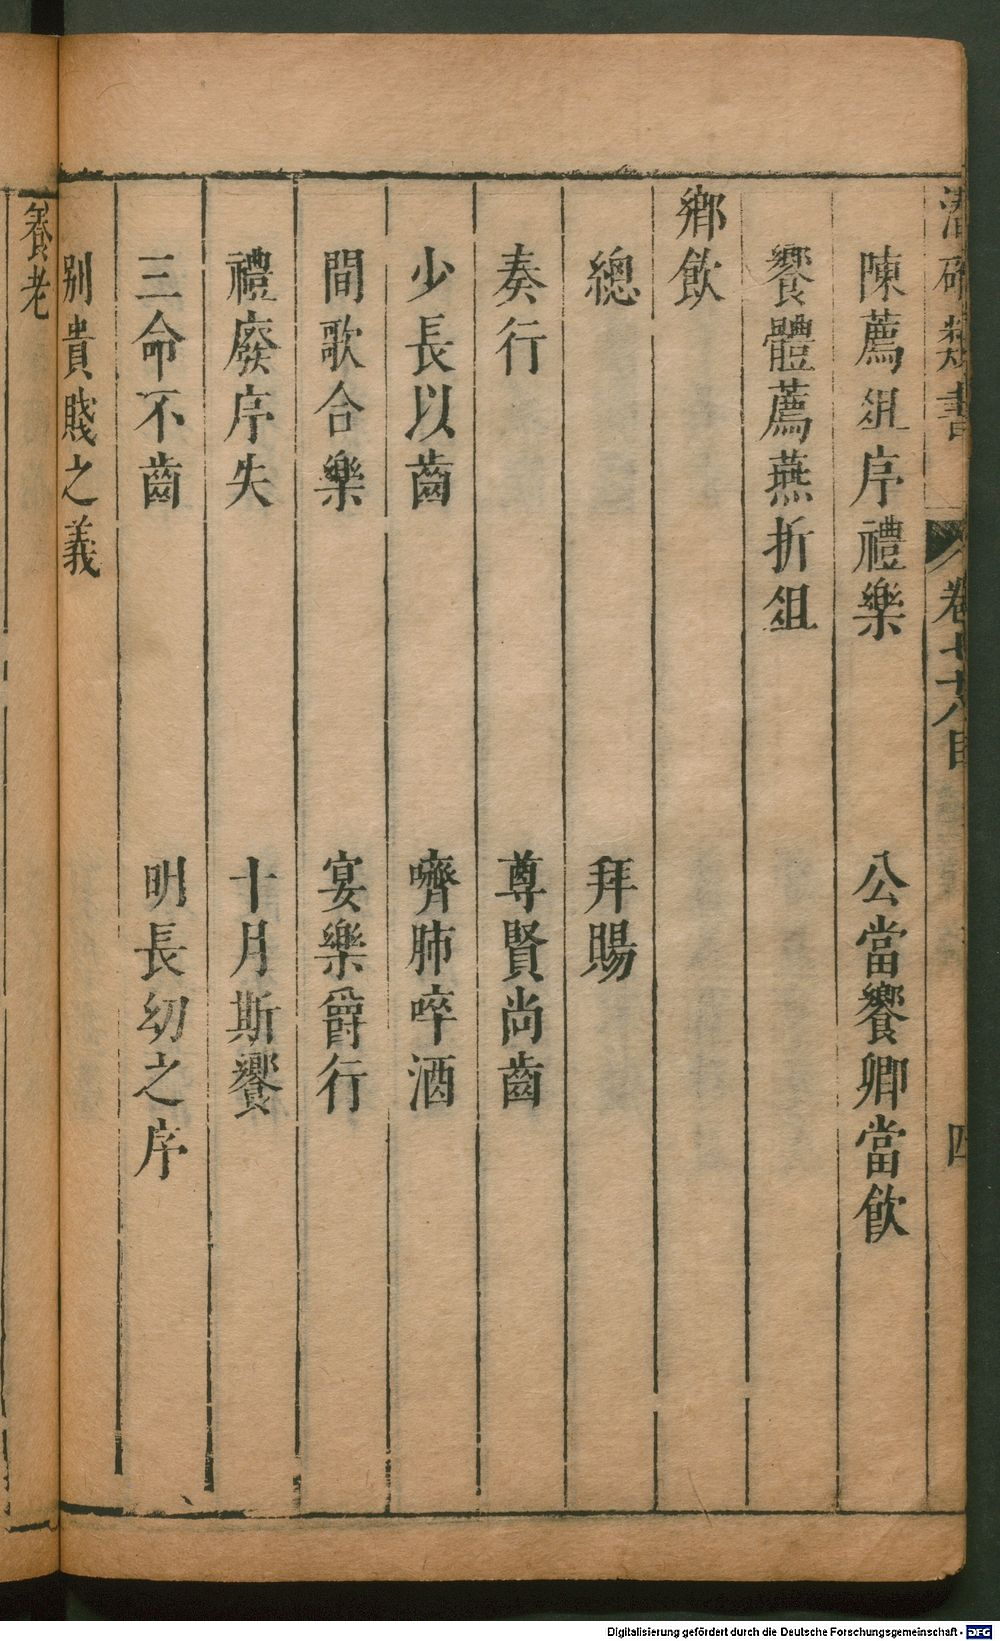 潛確類書 卷七十八目 四
陳薦俎序禮樂 公當饗卿當飲
饗體薦燕折俎
鄉飲
總 拜賜
奏行 尊賢尚齒
少長以齒 嚌肺啐酒
間歌合樂 宴樂爵行
禮廢序失 十月斯饗
三命不齒 明長幼之序
別貴賤之義
養老
Digitalisierung gefördert durch die Deutsche Forschungsgemeinschaft - DFG